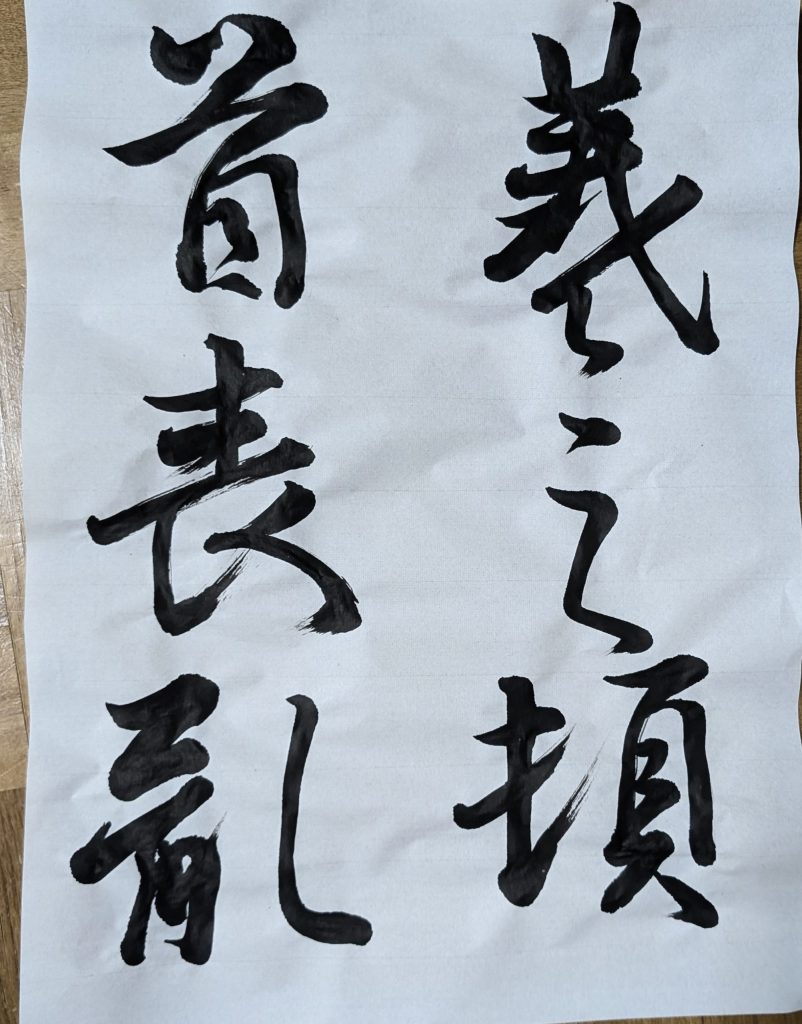 羲之頓
首喪亂